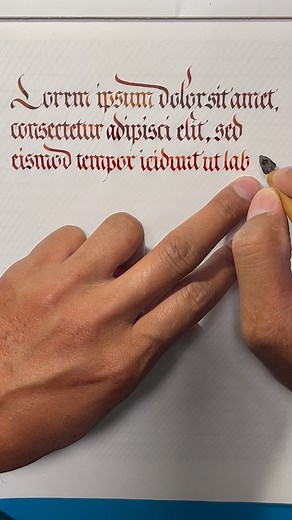 Lorem ipsum dolor sit amet,
consectetur adipisci elit, sed
eismod tempor icidunt ut lab